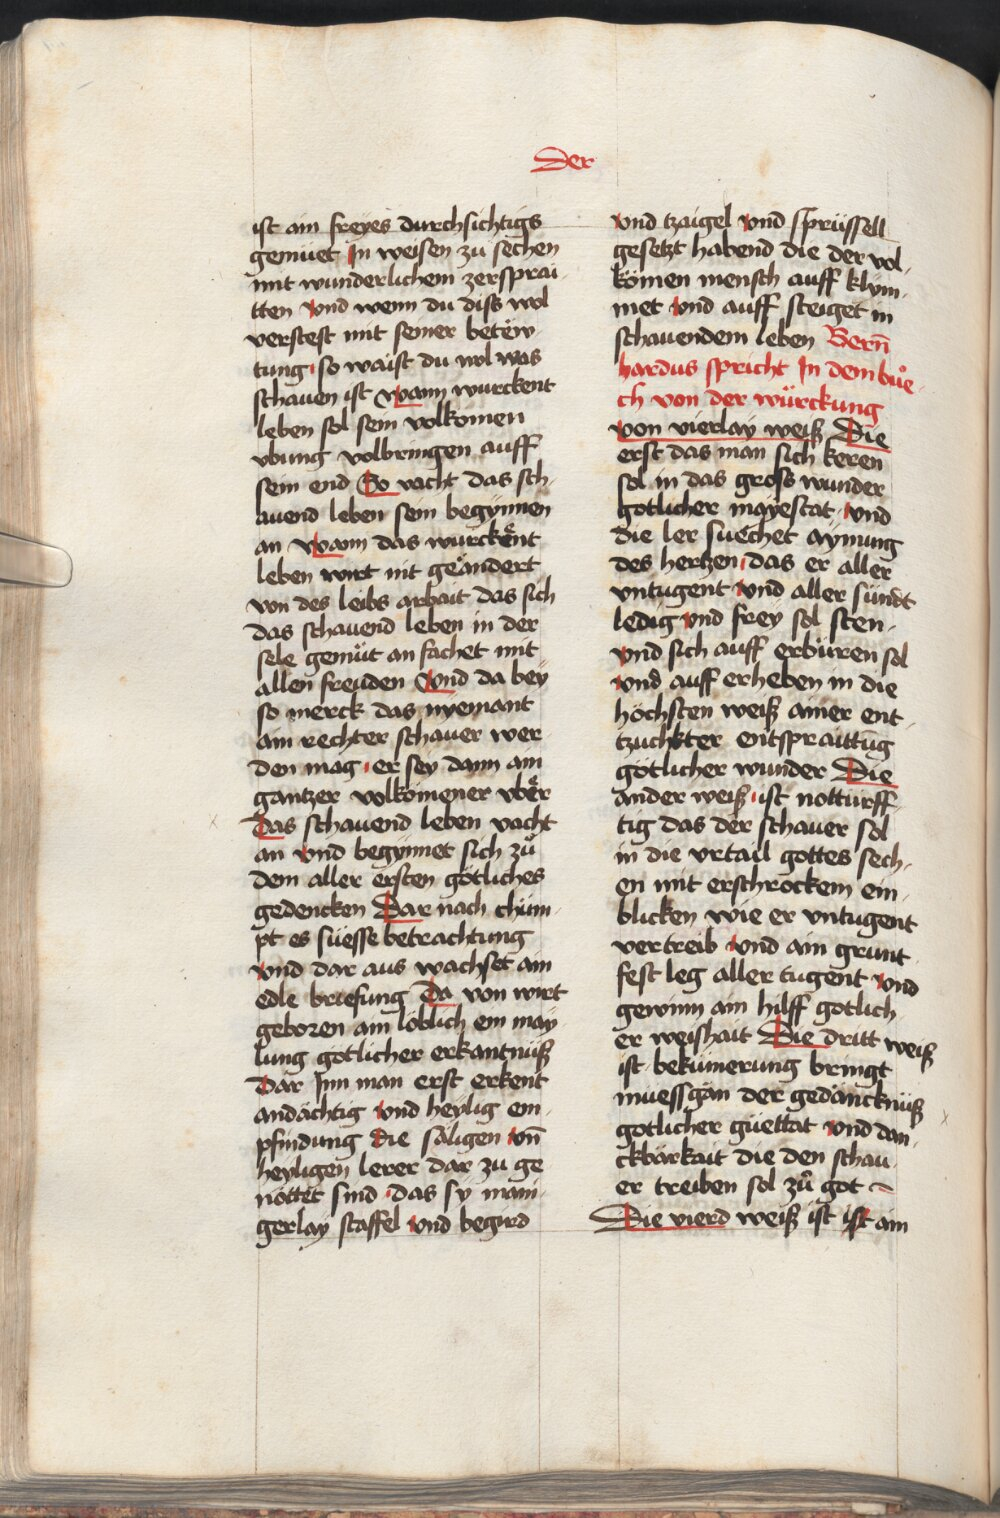 Der
ist ain freyes durchsichtigs
gemüet In weisen zu sechen
mit wunderlichem zersprai-
tten Vnd wenn du diss wol
verstest mit seiner betëw-
tung so waist du wol was
schauen ist Wann wurckent
leben sol sein volkomen
vbung volbringen auff
sein end So vacht das sch-
auend leben sein begynnen
an Wann das wurckënt
leben wirt nit geändert
von des leibs arbait das sich
das schauend leben in der
sele gemüt an fachet mit
allen freuden Vnd da bey
so merck das nyemant
ain rechter schauer wer-
den mag er sey dann ain
gantzer volkomener vbër
Das schauend leben vacht
an vnd begynnet sich zu
dem aller ersten götliches
gedencken Dar nach chüm-
pt es süesse betrachtung
Vnd dar aus wachset ain
edle briefung Da von wirt
geboren ain löblich ein may-
lung götlicher erkantnüß
Dar Inn man erst erkent
andächtig vnd heylig em-
pfindung Die säligen vn̄
heyligen lerer dar zu ge
nöttet sind das sy mani-
gerlay staffel vnd begird
Vnd tzaigel vnd sprüssell
gesetzt habend die der vol-
kömen mensch auff klym-
met vnd auff steiget in
schauendem leben Bern̄
hardus spricht In dem bůe-
ch von der würckung
von vierlay weiß Die
erst das man sich keren
sol in das gross wunder
gotlicher mayestat Vnd
die ler suechet aynung
des hertzen das er aller
vntugent vnd aller sündt
ledig vnd frey sol sten-
Vnd sich auff erbüren sol
vnd auff erheben in die
höchsten weiß ainer ent-
tzuckter entspraittūg
götlicher wunder Die
ander weiß ist notturff-
tig das der schauer sol
in die vrtail gottes sech-
en mit erschrockem ein-
blicken wie er vntugent
vertreib vnd ain grunt-
fest leg aller tugent vnd
gewinn ain hilff gotlich
er weishait Die dritt weiß
ist bekümerung bringt
muessgan der gedänncknüß
gotlicher güettat vnd dan-
ckbärkait die den schau-
er treiben sol zů got
Die vierd weiß ist ist ain